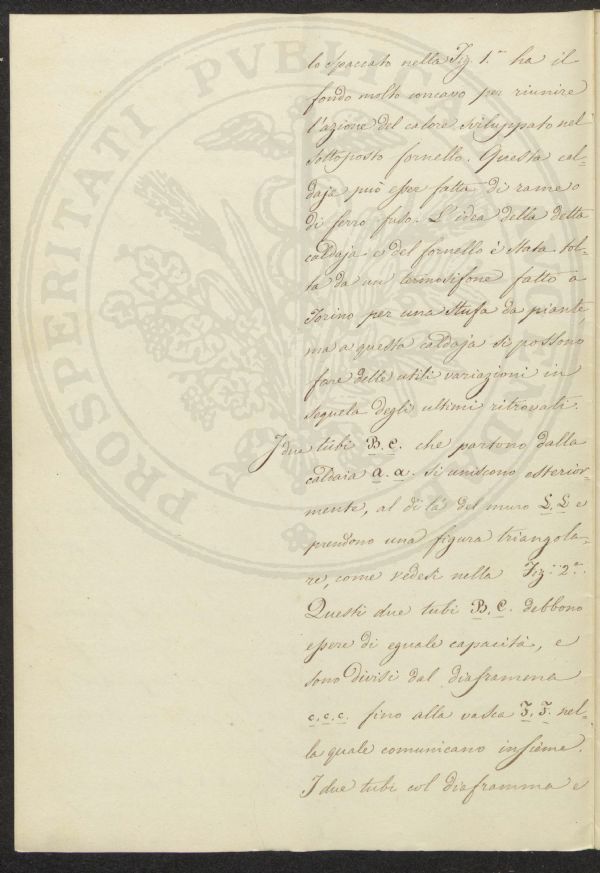 lo spaccato nella Fig. 1.ª ha il
fondo molto concavo per riunire
l'azione del calore sviluppato nel
sottoposto fornello. Questa cal=
daja può esser fatta di rame o
di ferro fuso. L'idea della detta
caldaja e del fornello è stata tol=
ta da un termosifone fatto a
Torino per una Stufa da piante
ma a questa caldaja si possono
fare delle utili variazioni in
sequela degli ultimi ritrovati.
I due tubi B. C. che partono dalla
caldaia a. a. si uniscono esterior=
mente, al di là del muro L. L e
prendono una figura triangola=
re, come vedesi nella Fig: 2.ª
Questi due tubi B. C. debbono
essere di eguale capacità, e
sono divisi dal diaframma
c. c. c. fino alla vasca F. F. nel=
la quale comunicano insieme.
I due tubi col diaframma e
PROSPERITATI PVBLIC